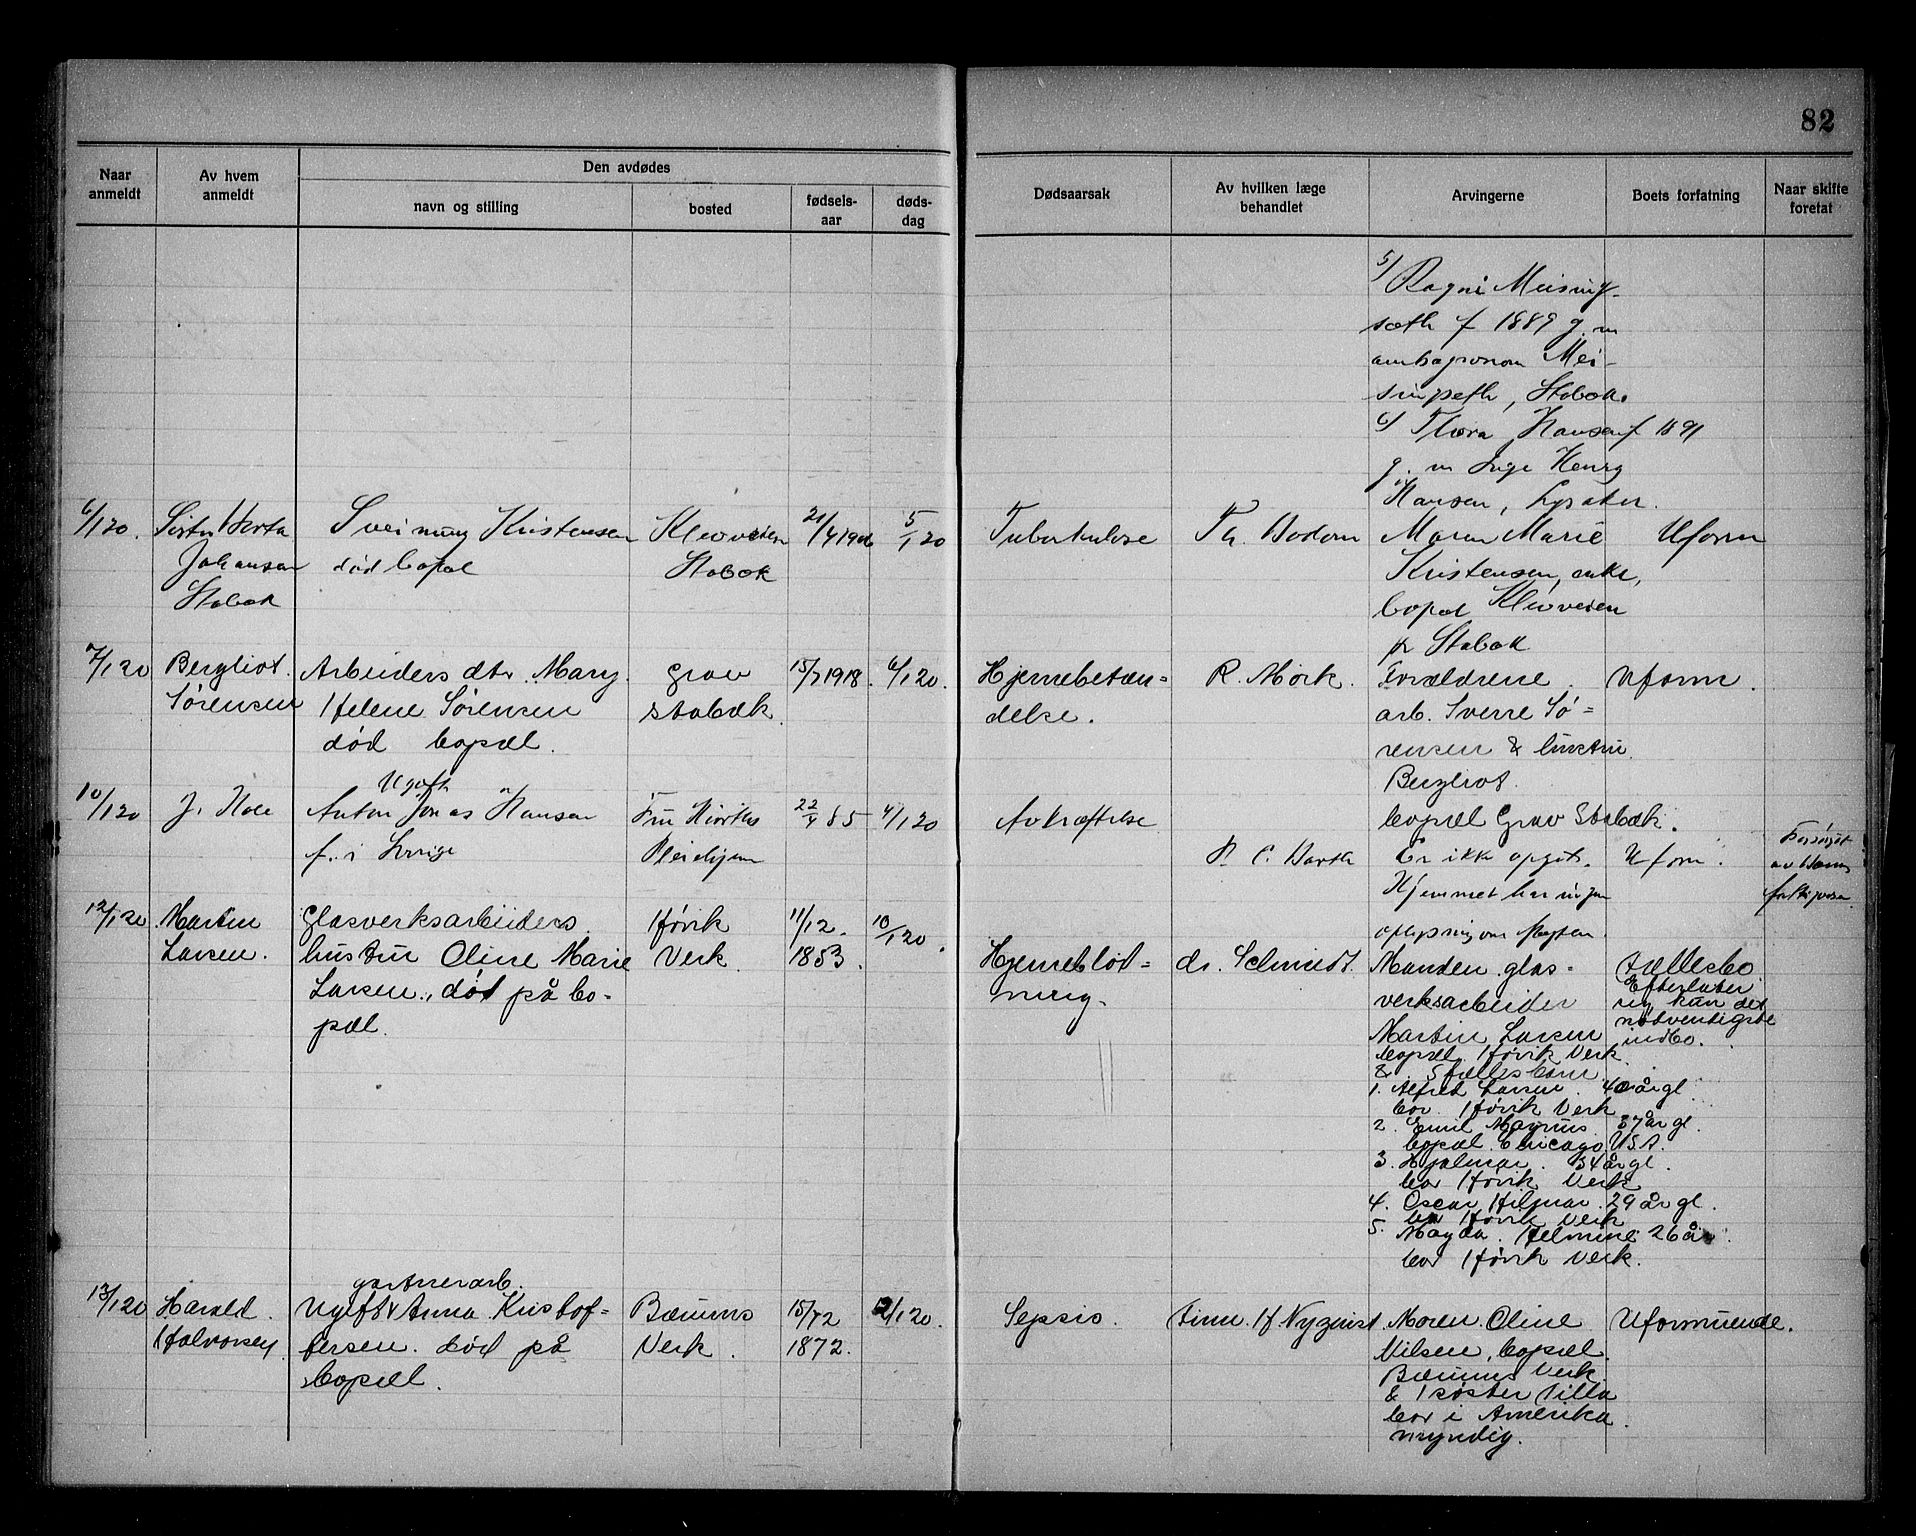 82
Naar anmeldt
Av hvem anmeldt
Den avdødes
navn og stilling
bosted
fødsels-aar
døds-dag
Dødsaarsak
Av hvilken læge behandlet
Arvingerne
Boets forfatning
Naar skifte foretat
5/ Ragni Meising-
sæth f 1889 g. m
Mei-
, Stabæk.
6/ Thora Hansen f 1891
g. m Inge Henry
Hansen, Lysaker.
6/1 20.
Johansen
Stabæk
Sveinung Kristensen
død bopæl
Kleivveien
Stabæk
5/1 20
Tuberkulose
Th. Bodom
Maren Marie
Kristensen, enke,
bopæl Kleivveien
pr Stabæk
Uform
7/1 20
Bergliot
Sørensen
Arbeiders dtr. Mary
Helene Sørensen
død bopæl.
Grav
Stabæk.
15/7 1918.
6/1 20.
Hjernebetæn=
delse.
R. Mørk.
Forældrene
arb. Sverre Sø=
rensen & hustru
Bergliot.
bopæl Grav Stabæk.
Uform.
10/1 20
J. Hole
Ugift
Anton Jonas Hansen
f. i Sverige
Fru Hiorths
Pleiehjem
4/1 20
Avkræftelse
P. C. Barth
Er ikke opgit.
Hjemmet har ingen
Uform.
Forsørget
av Bærums
12/1 20
Martin
Larsen.
Glasverksarbeiders
hustru Oline Marie
Larsen., død på bo-
pæl.
Høvik
Verk.
11/12.
1853.
10/1 20.
Hjerneblød=
ning.
dr. Schmidt.
Manden glas=
verksarbeider
Martin Larsen
bopæl. Høvik Verk
& 5 fællesbarn.
1. Alfred Larsen. 40 årgl.
bor. Høvik Verk
2. Emil Magnus 37 år gl.
bopæl. Chicago, U.S.A.
3. Hjalmar. 34 årgl.
bor Høvik Verk
4. Oscar Hilmar. 29 år gl.
bor Høvik Verk
5. Magda. Helmine 26 år
bor Høvik Verk.
Fællesbo
Efterlater
sig kun det
nødvendigste
indbo.
13/1 20
Harald
Halvorsen
gartnerarb.
Ugift Anna Kristof=
fersen. død på
bopæl.
Bærums
Verk.
15/12
1872.
12/1 20.
Sepsis.
Finn. H. Nyquist.
Maren Oline
Nilsen, bopæl.
Bærums Verk
& 1 søster Tilla
bor i Amerika
myndig.
Uformuende.